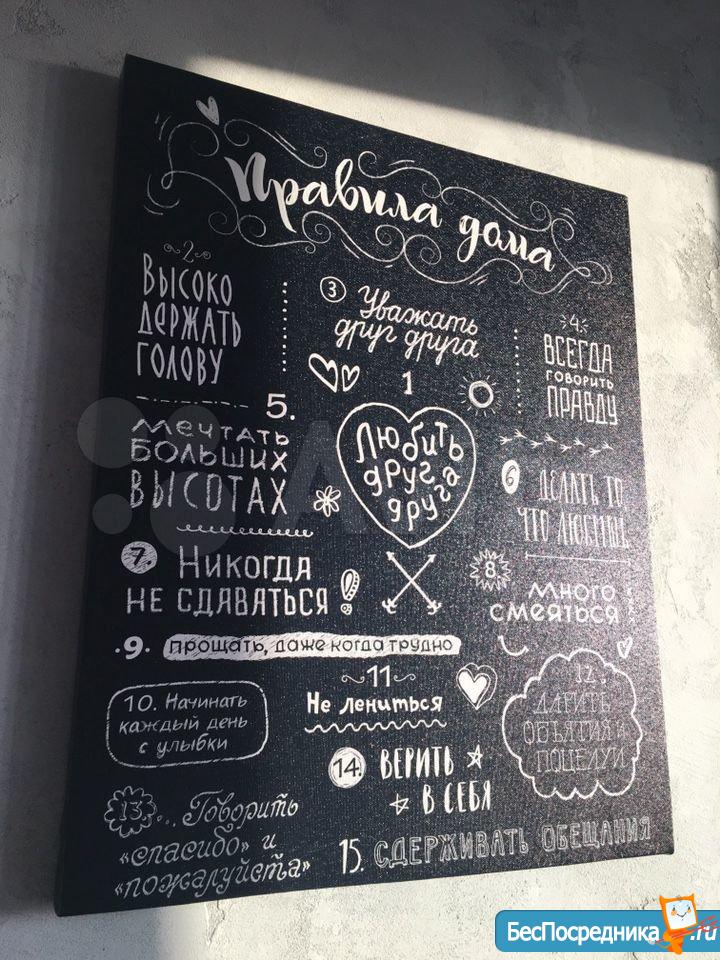 Правила дома
2
Высоко
держать
голову
3 Уважать
друг друга
4
Всегда
говорить
правду
1
Любить
друг
друга
5.
Мечтать
больших
высотах
6 Делать то
что любишь
7. Никогда
не сдаваться
8
много
смеяться
.9. прощать, даже когда трудно
10. Начинать
каждый день
с улыбки
11
Не лениться
12.
Дарить
объятия и
поцелуи
13... Говорить
«спасибо» и
«пожалуйста»
14. Верить
в себя
15. Сдерживать обещания
БесПосредника.ru